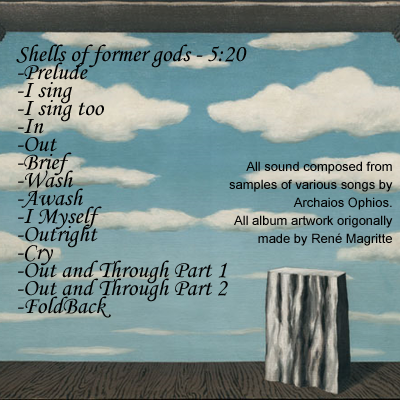 Shells of former gods - 5:20
-Prelude
-I sing
-I sing too
-In
-Out
-Brief
-Wash
-Awash
-I Myself
-Outright
-Cry
-Out and Through Part 1
-Out and Through Part 2
-FoldBack
All sound composed from
samples of various songs by
Archaios Ophios.
All album artwork origonally
made by René Magritte